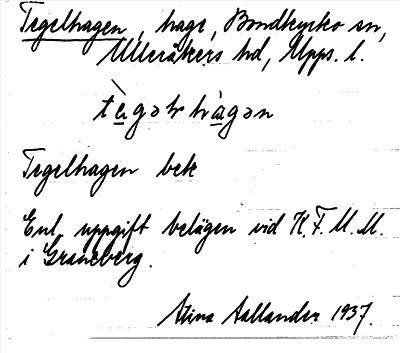 Tegelhagen, hage, Bondkyrko sn,
Ulleråkers hd, Upps. l.
tè̱gəlhà̱gən
Tegelhagen bek
Enl. uppgift belägen vid K.F.U.M.
i Graneberg.
Stina Aallander 1937.